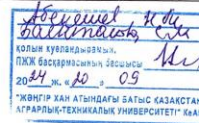 қолын куәландырамын.
ПЖЖ басқармасының басшысы
20 24 ж. «20» 09
"ЖӘҢГІР ХАН АТЫНДАҒЫ БАТЫС ҚАЗАҚСТАН
АГРАРЛЫҚ-ТЕХНИКАЛЫҚ УНИВЕРСИТЕТІ" КеАҚ